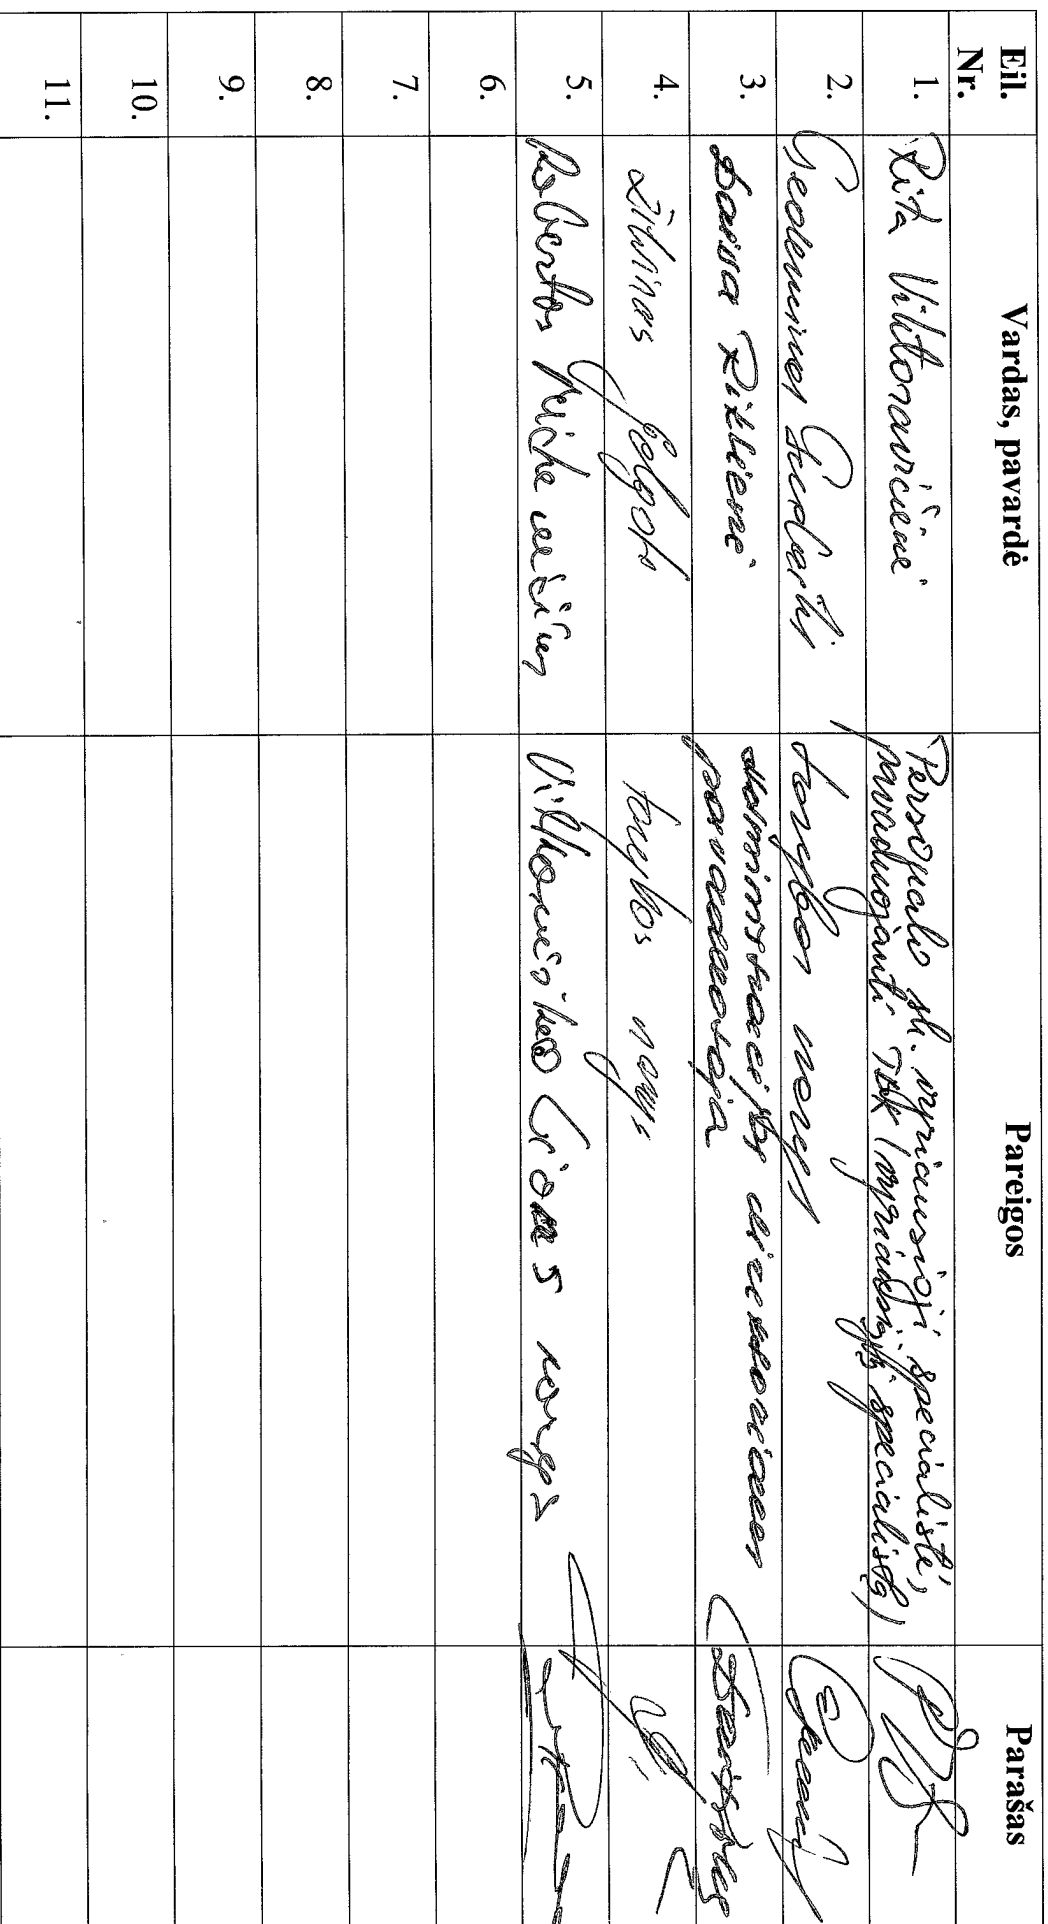 Eil. Nr. Vardas, pavardė Pareigos Parašas
1. Rita Viktoravičienė Personalo sk. vyriausioji specialistė,
pavaduojanti TAK (vyriausiąjį specialistą)
2. Gediminas Gudaitis tarybos narys
3. Daiva Rizlienė administracijos direktoriaus
pavaduotoja
4. Žilvinas tarybos narys
5. Robertas narys
6.
7.
8.
9.
10.
11.